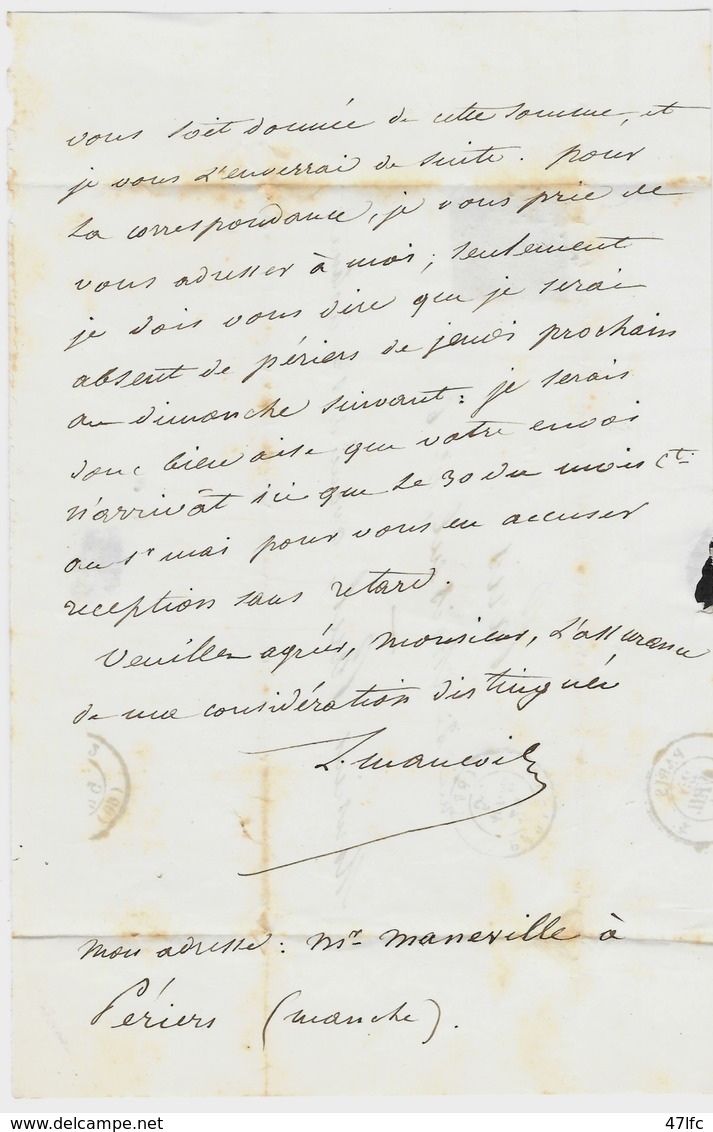 vous soit donnée de cette somme, et
je vous l'enverrai de suite. pour
la correspondance, je vous prie de
vous adresser à moi; seulement
je dois vous dire que je serai
absent de périers de jeudi prochain
au dimanche suivant: je serais
donc bien aise que votre envoi
n'arrivât ici que le 30 du mois Ct.
au 1r mai pour vous en accuser
reception sans retard.
Veuillez agréer, monsieur, l'assurance
de ma considération distinguée
mon adresse: mr. manneville à
Périers (manche).
47lfc